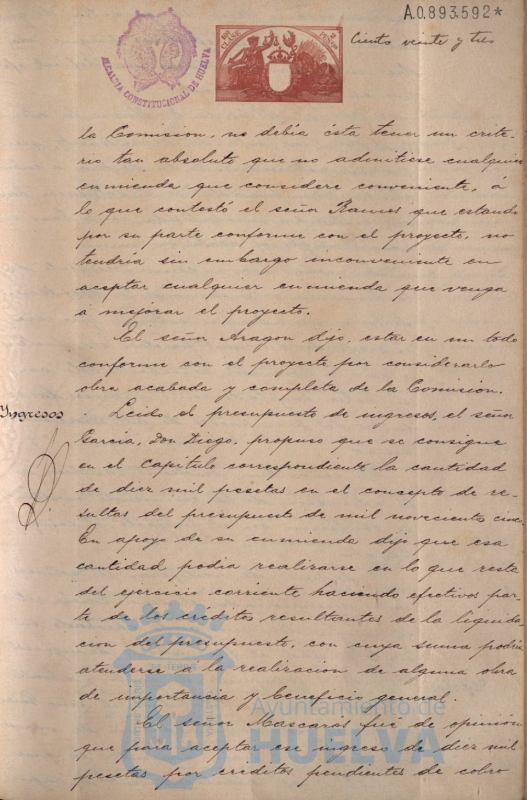 A.0.893.592*
11ª CLASE
2 PESETAS
ALCALDIA CONSTITUCIONAL DE HUELVA
Ciento veinte y tres
la Comision, no debia ésta tener un crite-
rio tan absoluto que no admitiese cualquier
enmienda que considere conveniente, á
lo que contestó el señor Ramos que estando
por su parte conforme con el proyecto, no
tendria sin embargo inconveniente en
aceptar cualquier enmienda que venga
á mejorar el proyecto.
El señor Aragon dijo, estar en un todo
conforme con el proyecto por considerarlo
obra acabada y completa de la Comision.
Ingresos
Leido el presupuesto de ingresos, el señor
Garcia, Don Diego, propuso que se consigne
en el Capitulo correspondiente la cantidad
de diez mil pesetas en el concepto de re-
sultas del presupuesto de mil novecientos cinco.
En apoyo de su enmienda dijo que esa
cantidad podia realizarse en lo que resta
del ejercicio corriente haciendo efectivos par-
te de los creditos resultantes de la liquida-
cion del presupuesto, con cuya suma podria
atenderse á la realizacion de alguna obra
de importancia y beneficio general.
El señor Mascarós fué de opinion
que para aceptar ese ingreso de diez mil
pesetas por creditos pendientes de cobro
Ayuntamiento de
HUELVA